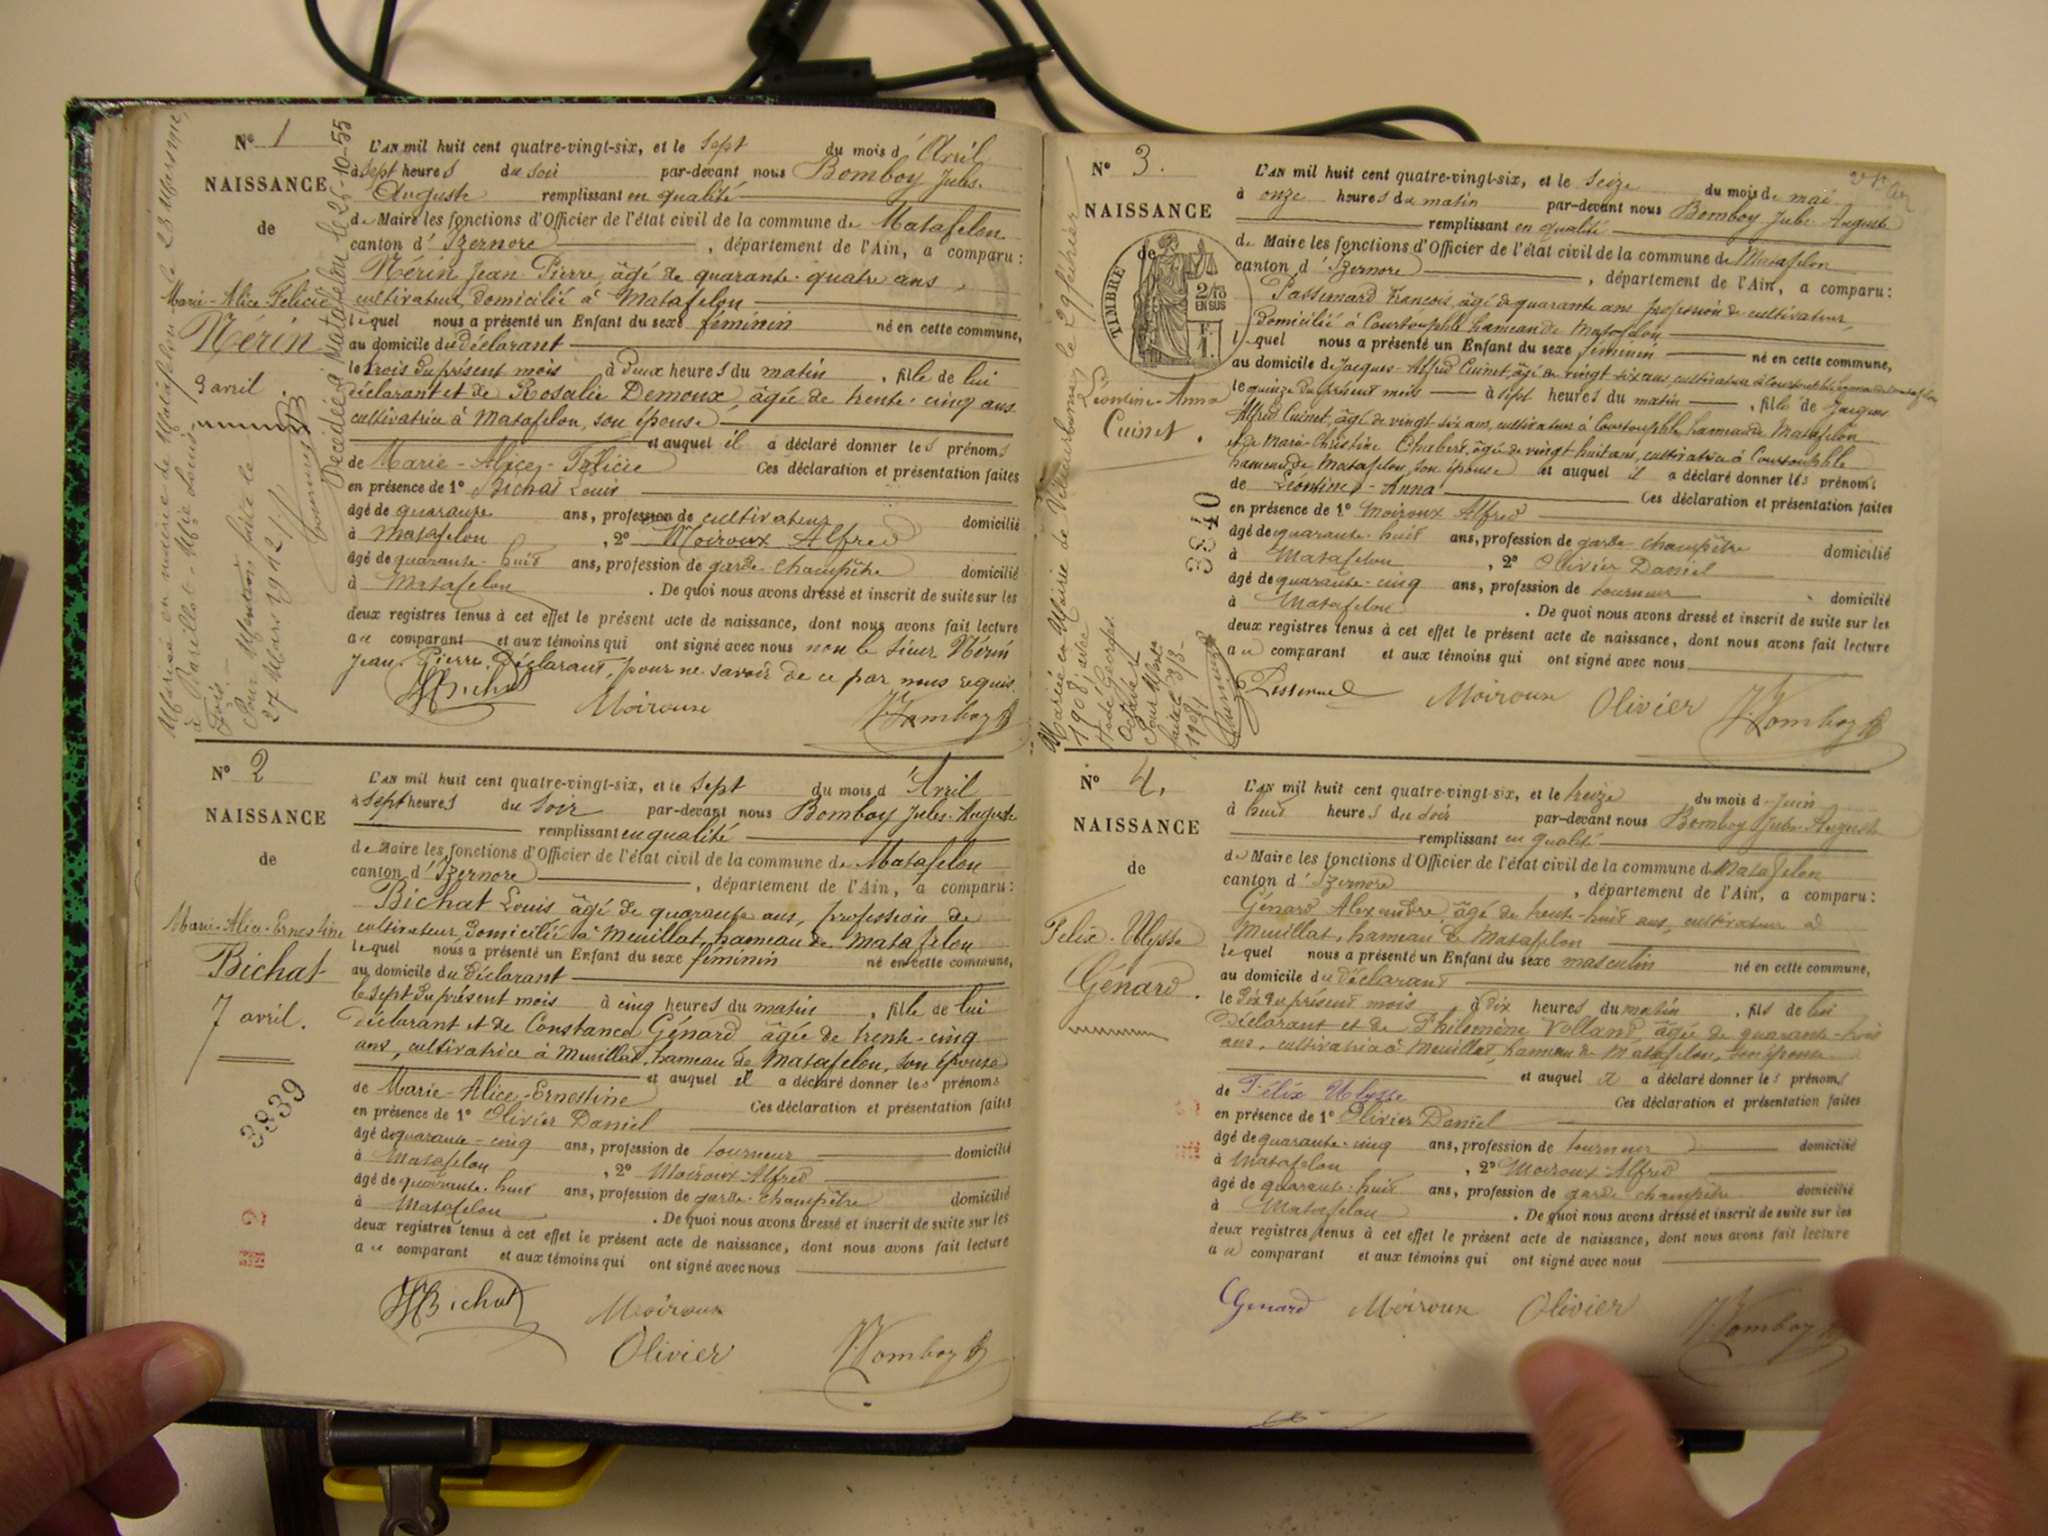 Nº 1
NAISSANCE
de
Marie-Alice-Félicie
Nérin
3 avril
Décédée à Matafelon le 25-10-55
L'AN mil huit cent quatre-vingt-six, et le sept du mois d'Avril
à sept heures du soir par-devant nous Bomboy Jules
Auguste remplissant en qualité
de Maire les fonctions d'Officier de l'état civil de la commune de Matafelon
canton d'Izernore, département de l'Ain, a comparu:
Nérin Jean Pierre, âgé de quarante-quatre ans,
cultivateur, domicilié à Matafelon
lequel nous a présenté un Enfant du sexe féminin né en cette commune,
au domicile du déclarant
le trois du présent mois à deux heures du matin, fille de lui
déclarant et de Rosalie Demoux, âgée de trente-cinq ans
cultivatrice à Matafelon, son épouse
et auquel il a déclaré donner les prénoms
de Marie-Alice-Félicie Ces déclaration et présentation faites
en présence de 1º Bichat Louis
âgé de quarante ans, profession de cultivateur domicilié
à Matafelon, 2º Moiroux Alfred
âgé de quarante-huit ans, profession de garde-champêtre domicilié
à Matafelon. De quoi nous avons dressé et inscrit de suite sur les
deux registres tenus à cet effet le présent acte de naissance, dont nous avons fait lecture
au comparant et aux témoins qui ont signé avec nous non le sieur Nérin
Jean-Pierre, déclarant, pour ne savoir de ce par nous requis.
Bichat Moiroux J. Bomboy
Nº 2
NAISSANCE
de
Marie-Alice-Ernestine
Bichat
7 avril.
3839
L'AN mil huit cent quatre-vingt-six, et le sept du mois d'Avril
à sept heures du soir par-devant nous Bomboy Jules-Auguste
remplissant en qualité
de Maire les fonctions d'Officier de l'état civil de la commune de Matafelon
canton d'Izernore, département de l'Ain, a comparu:
Bichat Louis âgé de quarante ans, profession de
cultivateur, domicilié à Meuillat, hameau de Matafelon
lequel nous a présenté un Enfant du sexe féminin né en cette commune,
au domicile du déclarant
le sept du présent mois à cinq heures du matin, fille de lui
déclarant et de Constance Génard âgée de trente-cinq
ans, cultivatrice à Meuillat, hameau de Matafelon, son épouse
et auquel il a déclaré donner les prénoms
de Marie-Alice-Ernestine Ces déclaration et présentation faites
en présence de 1º Olivier Daniel
âgé de quarante-cinq ans, profession de tourneur domicilié
à Matafelon, 2º Moiroux Alfred
âgé de quarante-huit ans, profession de garde-champêtre domicilié
à Matafelon. De quoi nous avons dressé et inscrit de suite sur les
deux registres tenus à cet effet le présent acte de naissance, dont nous avons fait lecture
au comparant et aux témoins qui ont signé avec nous
Bichat Moiroux
Olivier J. Bomboy
Nº 3.
NAISSANCE
de
TIMBRE
2/10
EN SUS
F.
1.
Léontine-Anna
Cuinet.
3840
Mariée en Mairie de Villeurbanne, le 29 février
1908, avec
L'AN mil huit cent quatre-vingt-six, et le seize du mois de mai
à onze heures du matin par-devant nous Bomboy Jules Auguste
remplissant en qualité
de Maire les fonctions d'Officier de l'état civil de la commune de Matafelon
canton d'Izernore, département de l'Ain, a comparu:
Passerard François, âgé de quarante ans profession de cultivateur,
domicilié à Courtouphle hameau de Matafelon
lequel nous a présenté un Enfant du sexe féminin né en cette commune,
au domicile de Jacques-Alfred Cuinet, âgé de vingt-six ans, cultivateur à Courtouphle, hameau de Matafelon
le quinze du présent mois à sept heures du matin, fille de Jacques
Alfred Cuinet, âgé de vingt-six ans, cultivateur à Courtouphle hameau de Matafelon
et de Marie-Christine Chabert, âgée de vingt huit ans, cultivatrice à Courtouphle
hameau de Matafelon, son épouse et auquel il a déclaré donner les prénoms
de Léontine-Anna Ces déclaration et présentation faites
en présence de 1º Moiroux Alfred
âgé de quarante-huit ans, profession de garde-champêtre domicilié
à Matafelon, 2º Olivier Daniel
âgé de quarante-cinq ans, profession de tourneur domicilié
à Matafelon. De quoi nous avons dressé et inscrit de suite sur les
deux registres tenus à cet effet le présent acte de naissance, dont nous avons fait lecture
au comparant et aux témoins qui ont signé avec nous
Moiroux Olivier J. Bomboy
Nº 4.
NAISSANCE
de
Félix-Ulysse
Génard.
L'AN mil huit cent quatre-vingt-six, et le treize du mois de Juin
à huit heures du soir par-devant nous Bomboy Jules-Auguste
remplissant en qualité
de Maire les fonctions d'Officier de l'état civil de la commune de Matafelon
canton d'Izernore, département de l'Ain, a comparu:
Génard Alexandre, âgé de trente-huit ans, cultivateur à
Meuillat, hameau de Matafelon
lequel nous a présenté un Enfant du sexe masculin né en cette commune,
au domicile du déclarant
le dix du présent mois, à dix heures du matin, fils de lui
déclarant et de Philomène Volland, âgée de quarante-trois
ans, cultivatrice à Meuillat, hameau de Matafelon, son épouse
et auquel il a déclaré donner les prénoms
de Félix Ulysse Ces déclaration et présentation faites
en présence de 1º Olivier Daniel
âgé de quarante-cinq ans, profession de tourneur domicilié
à Matafelon, 2º Moiroux-Alfred
âgé de quarante-huit ans, profession de garde champêtre domicilié
à Matafelon. De quoi nous avons dressé et inscrit de suite sur les
deux registres tenus à cet effet le présent acte de naissance, dont nous avons fait lecture
au comparant et aux témoins qui ont signé avec nous
Génard Moiroux Olivier J. Bomboy